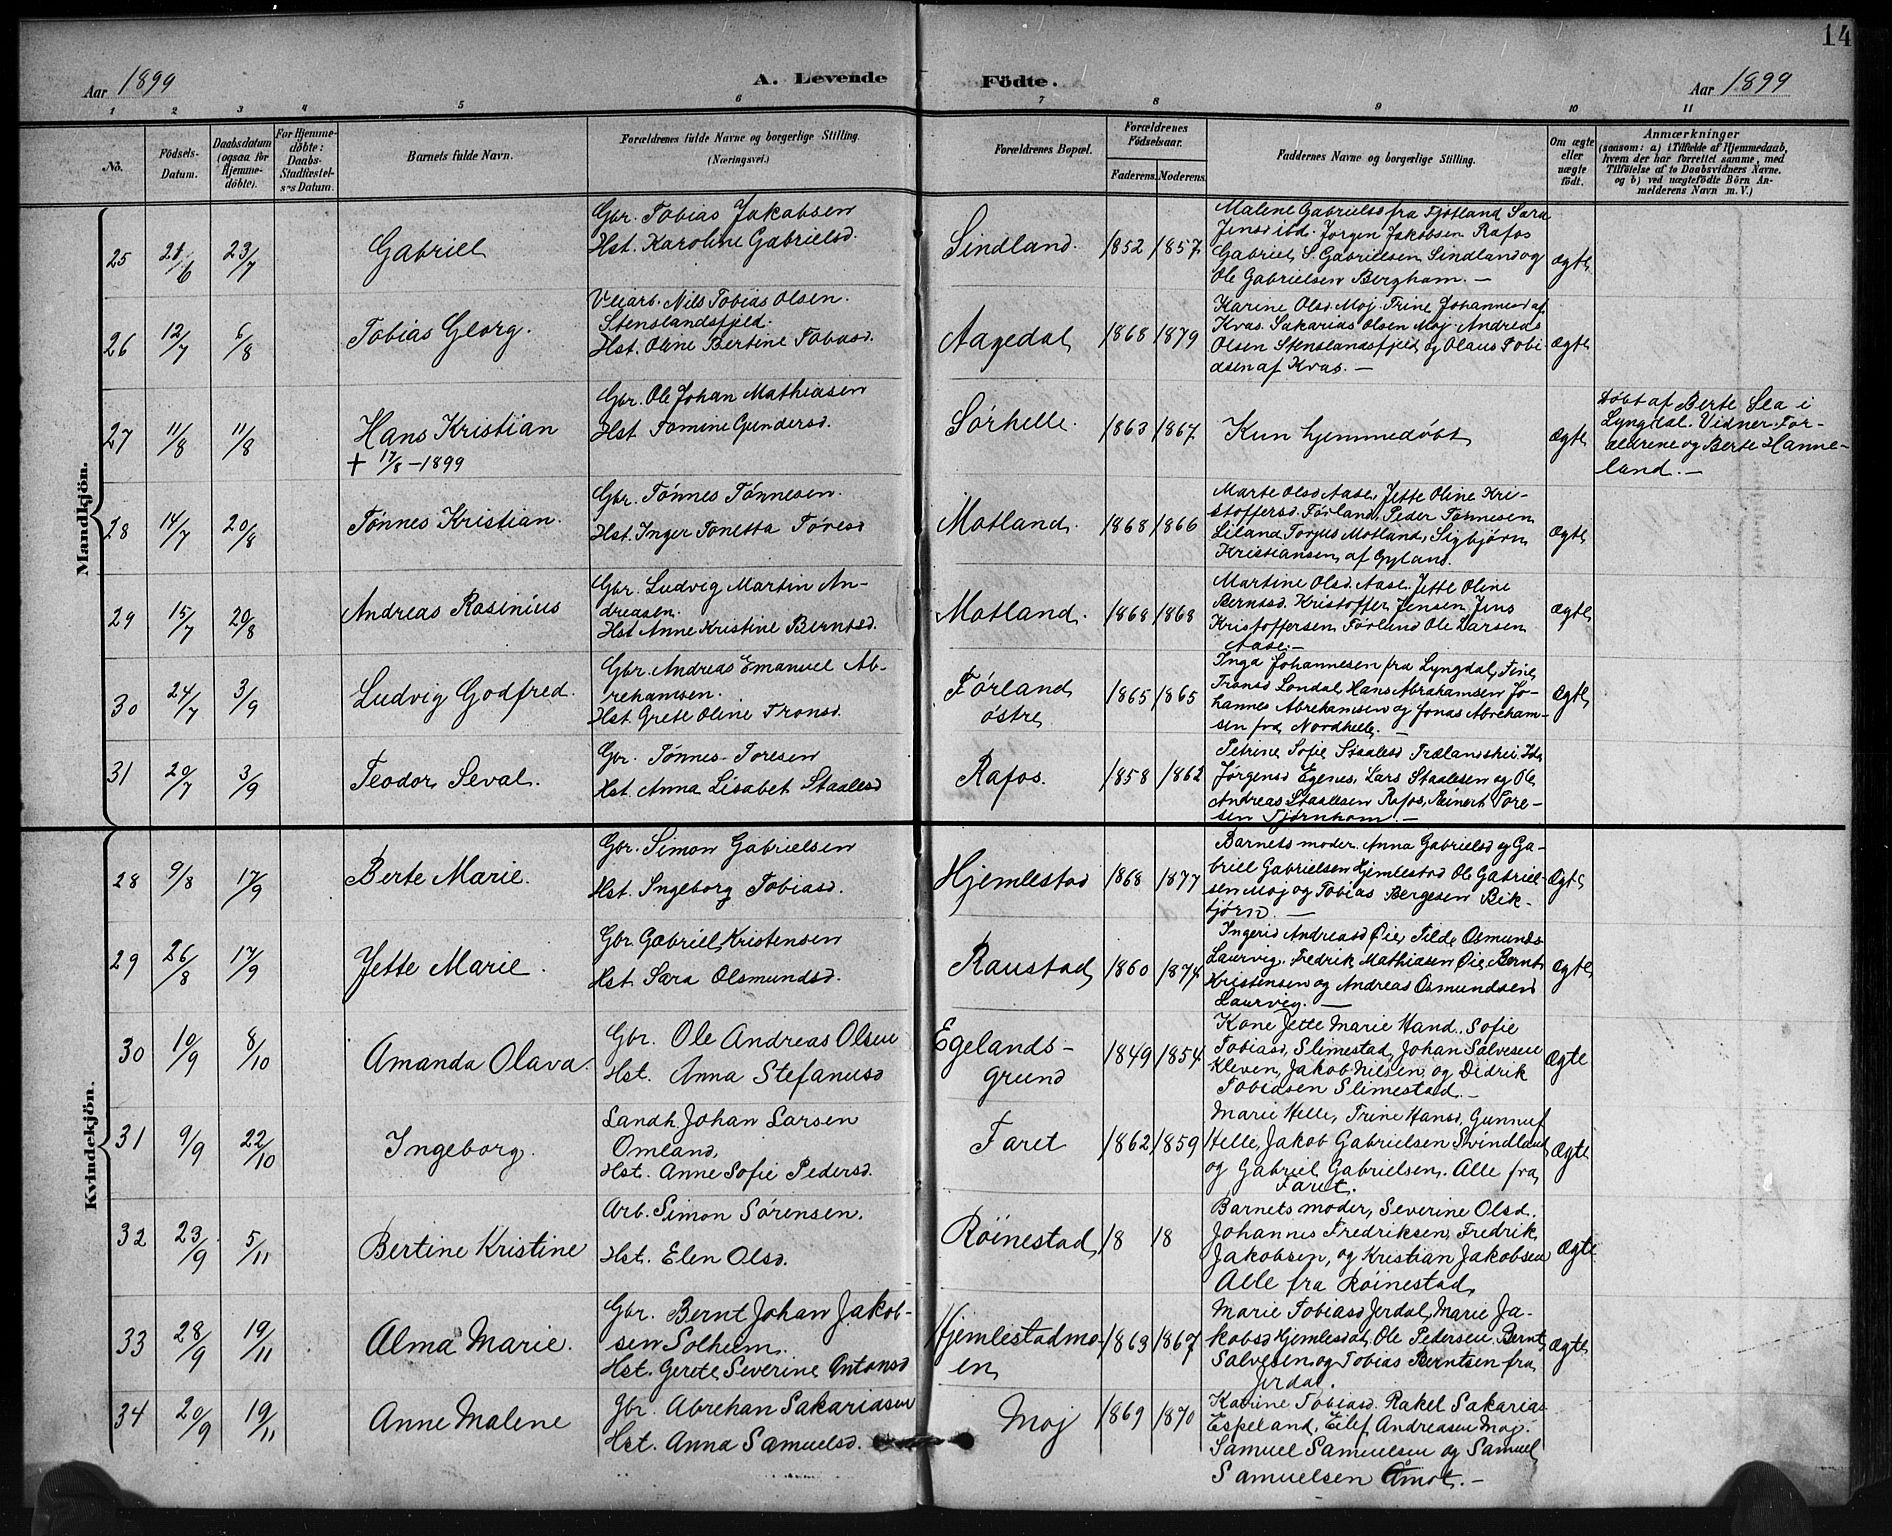 14
Aar 1899
A. Levende
Födte.
Aar 1899
1 2 3 4 5 6 7 8 9 10 11
No.
Födsels-
Datum.
Daabsdatum
(ogsaa for
Hjemme-
döbte).
For Hjemme-
döbte:
Daabs-
Stadfæstel-
s-s Datum.
Barnets fulde Navn.
Forældrenes fulde Navne og borgerlige Stilling.
(Næringsvei.)
Forældrenes Bopæl.
Forældrenes
Födselsaar.
Faderens. Moderens.
Faddernes Navne og borgerlige Stilling.
Om ægte
eller
uægte
födt.
Anmærkninger
(saasom: a) i Tilfælde af Hjemmedaab,
hvem der har forrettet samme, med
Tilföielse af to Daabsvidners Navne,
og b) ved uægtefödte Börn An-
melderens Navn m. V.)
Mandkjön.
25
21/6
23/7
Gabriel
Gbr. Tobias Jakobsen
Hst. Karoline Gabrielsd.
Sindland.
1852 1857
Malene Gabrielsd fra Fjotland Sara
Jensd ibd. Jørgen Jakobsen Rafos
Gabriel S. Gabrielsen Sindland og
Ole Gabrielsen Bergham. —
Ægte
26
12/7
6/8
Tobias Georg.
Veiarb. Nils Tobias Olsen.
Stenslandsfjeld.
Hst. Oline Bertine Tobiasd.
Aagedal
1868 1879
Karine Olsd. Moj. Trine Johannesd af
Kvas. Sakarias Olsen Moj. Andreas
Olsen Stenslandsfjeld og Olaus Tobi-
dsen af Kvas. —
Ægte
27
11/8
11/8
Hans Kristian
+ 17/8 - 1899
Gbr. Ole Johan Mathiasen
Hst. Tomine Gundersd.
Sørhelle.
1863 1867
Kun hjemmedøbt
Ægte
Døbt af Berte Lea i
Lyngdal. Vidner. For-
ældrene og Berte Hanne-
land. —
28
14/7
20/8
Tønnes Kristian.
Gbr. Tønnes Tønnesen.
Hst. Inger Tonetta Toresd
Motland.
1868 1866
Marte Olsd Aase, Jette Oline Kri-
stoffersd. Førland, Peder Tønnesen
Liland Torjus Motland, Sigbjørn
Kristiansen af Gyland.
Ægte
29
15/7
20/8
Andreas Rasinius
Gbr. Ludvig Martin An-
dreasen.
Hst Anne Kristine Berntsd.
Motland.
1868 1868
Martine Olsd. Aase. Jette Oline
Berntsd. Kristoffer Jensen, Jens
Kristoffersen Førland Ole Larsen
Aase. —
Ægte
30
24/7
3/9
Ludvig Godfred.
Gbr. Andreas Emanuel Ab-
rehamsen.
Hst. Grete Oline Tronsd.
Førland
østre
1865 1865
Inga Johannesen fra Lyngdal, Fine
Tronsd Londal, Hans Abrahamsen Jo-
hannes Abrehamsen og Jonas Abreham-
sen fra Nordhelle. —
Ægte
31
20/7
3/9
Teodor Seval.
Gbr. Tønnes Toresen
Hst. Anna Lisabet Staalesd
Rafos.
1858 1862
Petrine Sofie Staalesd Trælandshei
Jørgensd Egenes, Lars Staalesen og Ole
Andreas Staalesen Rafos, Reinert Tore-
sen Tjørnhom. —
Kvindekjön.
28
9/8
17/9
Berte Marie.
Gbr. Simon Gabrielsen
Hst. Ingeborg Tobiasd.
Hjemlestad
1868 1877
Barnets moder. Anna Gabrielsd og Ga-
briel Gabrielsen Hjemlestad Ole Gabriel-
sen Moj og Tobias Bergesen Birk-
bjørn. —
Ægte
29
26/8
17/9
Jette Marie.
Gbr. Gabriel Kristensen
Hst. Sara Olsmundsd.
Raustad
1860 1874
Ingerid Andreasd Øie, Tilde Osmunds
Laurvig. Fredrik Mathiasen Øie, Bernt
Kristensen og Andreas Osmundsen
Laurvig. —
Ægte
30
10/9
8/10
Amanda Olava.
Gbr. Ole Andreas Olsen
Hst. Anna Stefanusd
Egelands-
Grund
1849 1854
Kone Jette Marie Hand, Sofie
Tobiasd, Slimestad, Johan Salvesen
Kleven, Jakob Nilsen, og Didrik
Tobiasen Slimestad. —
Ægte
31
9/9
22/10
Ingeborg.
Landh. Johan Larsen
Omland,
Hst. Anne Sofie Pedersd.
Faret
1862 1859
Marie Helle, Trine Hansd, Gunnuf
Helle, Jakob Gabrielsen Svindland
og Gabriel Gabrielsen. Alle fra
Faret.
Ægte
32
23/9
5/11
Bertine Kristine
Arb. Simon Sørensen.
Hst. Elen Olsd.
Røinestad
18 18
Barnets moder, Severine Olsd.
Johannes Fredriksen, Fredrik
Jakobsen, og Kristian Jakobsen
Alle fra Røinestad
Ægte
33
28/9
19/11
Alma Marie.
Gbr. Bernt Johan Jakob-
sen Solheim.
Hst. Gerete Severine Antonsd
Hjemlestadmo-
en
1863 1867
Marie Tobiasd Jerdal, Marie Ja-
kobsd Hjemlesdat, Ole Pedersen Bernt
Salvesen og Tobias Berntsen fra
Jerdal.
Ægte
34
20/9
19/11
Anne Malene
Gbr. Abrehan Sakariasen
Hst. Anna Samuelsd.
Moj
1869 1870
Katrine Tobiasd. Rakel Sakarias
Espeland, Eilef Andreasen Moj.
Samuel Samuelsen og Samuel
Samuelsen Åmot. —